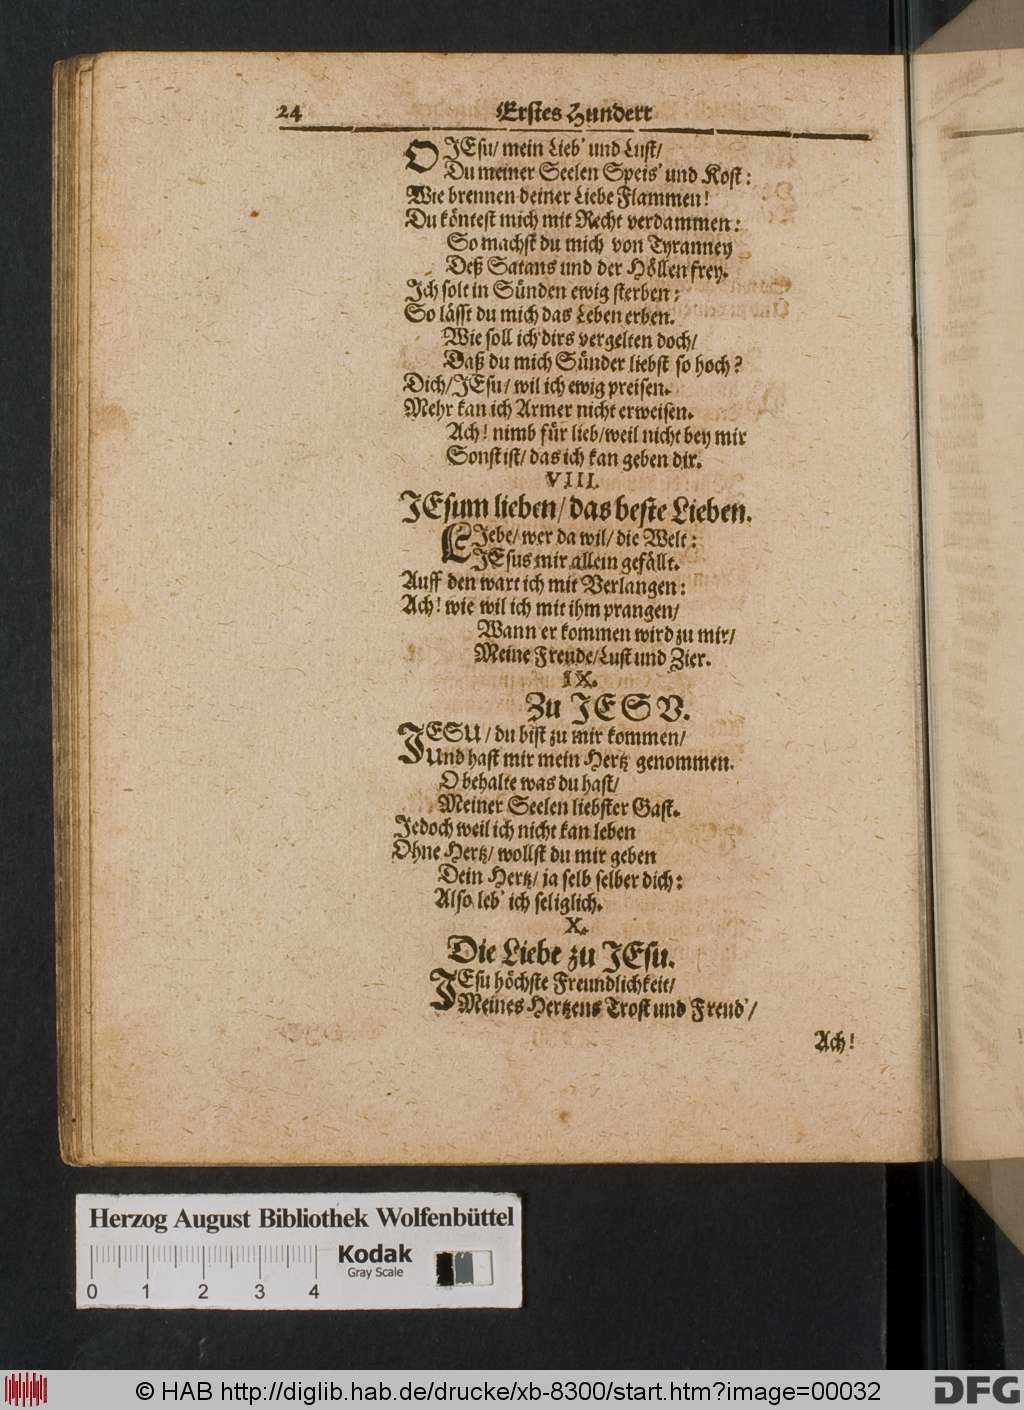 24 Erstes Hundert
O JEsu/ mein Lieb' und Lust/
Du meiner Seelen Speis' und Kost:
Wie brennen deiner Liebe Flammen!
Du köntest mich mit Recht verdammen:
So machst du mich von Tyranney
Deß Satans und der Höllen frey.
Ich solt in Sünden ewig sterben:
So lässt du mich das Leben erben.
Wie soll ich dirs vergelten doch/
Daß du mich Sünder liebst so hoch?
Dich/JEsu/ wil ich ewig preisen.
Mehr kan ich Armer nicht erweisen.
Ach! nimb für lieb/weil nicht bey mir
Sonst ist/ das ich kan geben dir.
VIII.
JEsum lieben/ das beste Lieben.
LIebe/ wer da wil/ die Welt:
JEsus mir allein gefällt.
Auff den wart ich mit Verlangen:
Ach! wie wil ich mit ihm prangen/
Wann er kommen wird zu mir/
Meine Freude/Lust und Zier.
IX.
Zu JESU.
JESU/ du bist zu mir kommen/
Und hast mir mein Hertz genommen.
O behalte was du hast/
Meiner Seelen liebster Gast.
Jedoch weil ich nicht kan leben
Ohne Hertz/ wollst du mir geben
Dein Hertz/ ja selb selber dich:
Also leb' ich seliglich.
X.
Die Liebe zu JEsu.
JEsu höchste Freundlichkeit/
Meines Hertzens Trost und Freud'/
Ach!
Herzog August Bibliothek Wolfenbüttel
Kodak
Gray Scale
0 1 2 3 4
© HAB http://diglib.hab.de/drucke/xb-8300/start.htm?image=00032
DFG